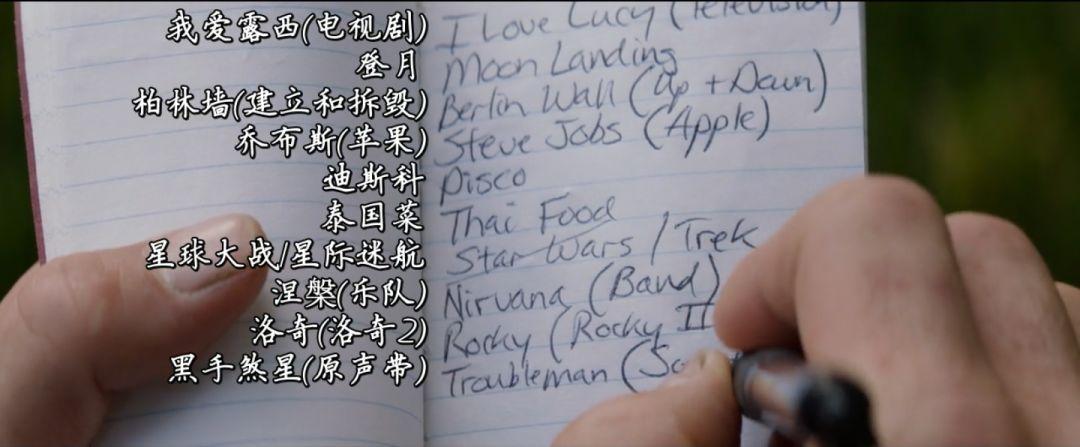 我爱露西(电视剧) I Love Lucy (Television)
登月 Moon Landing
柏林墙(建立和拆毁) Berlin Wall (Up + Down)
乔布斯(苹果) Steve Jobs (Apple)
迪斯科 Disco
泰国菜 Thai Food
星球大战/星际迷航 Star Wars / Trek
涅槃(乐队) Nirvana (Band)
洛奇(洛奇2) Rocky (Rocky II
黑手煞星(原声带) Troubleman (So